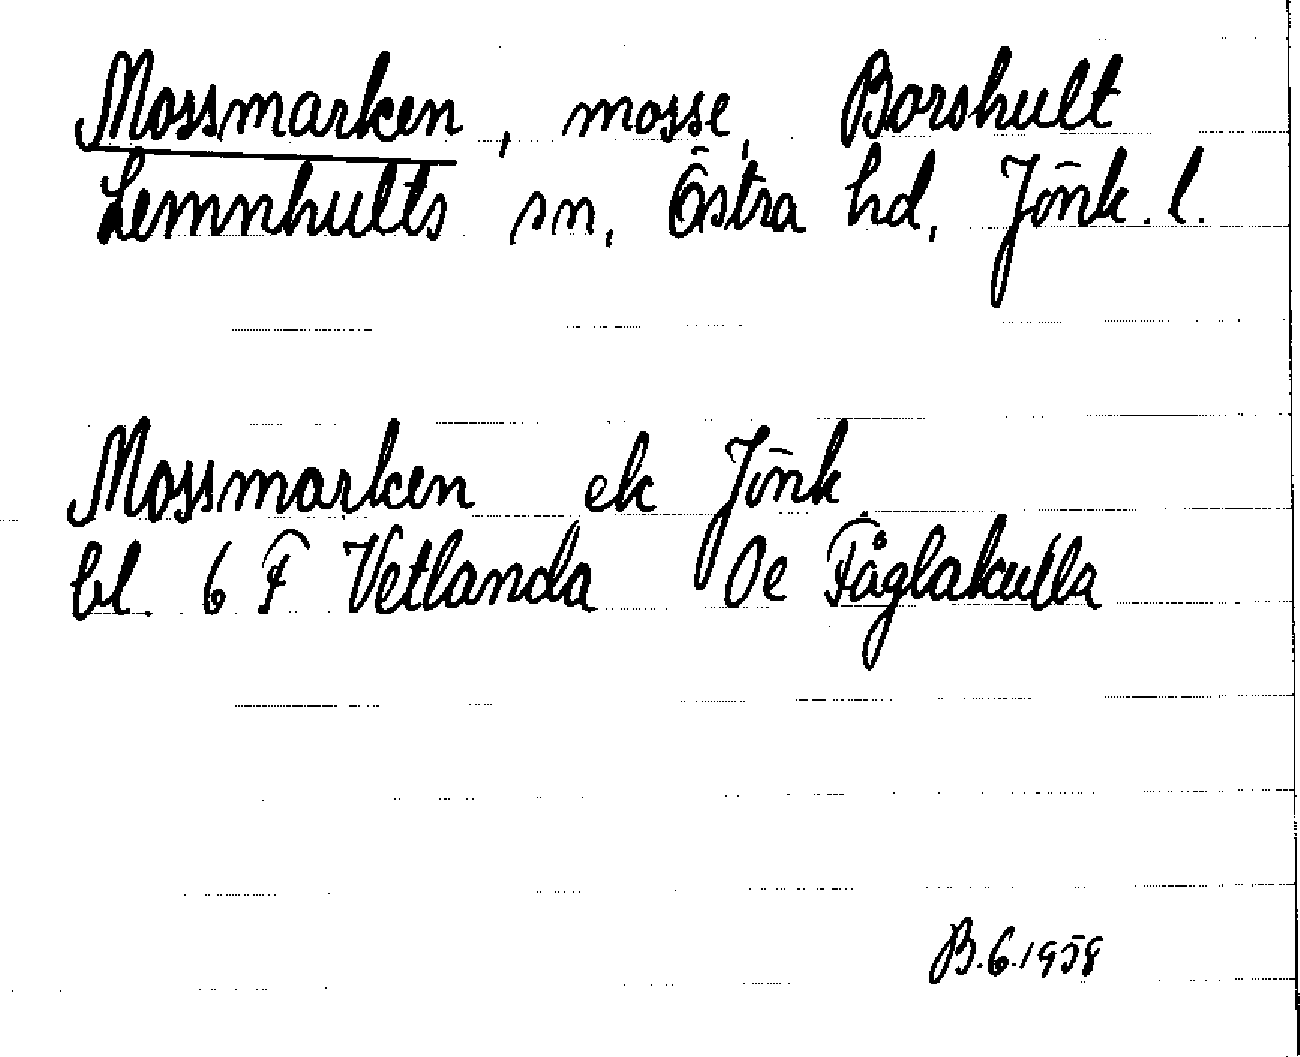 Mossmarken, mosse, Borshult
Lemnhults sn, Östra hd, Jönk. l.
Mossmarken ek Jönk
bl. 6 F Vetlanda Oe Fåglakulla
B.6.1958